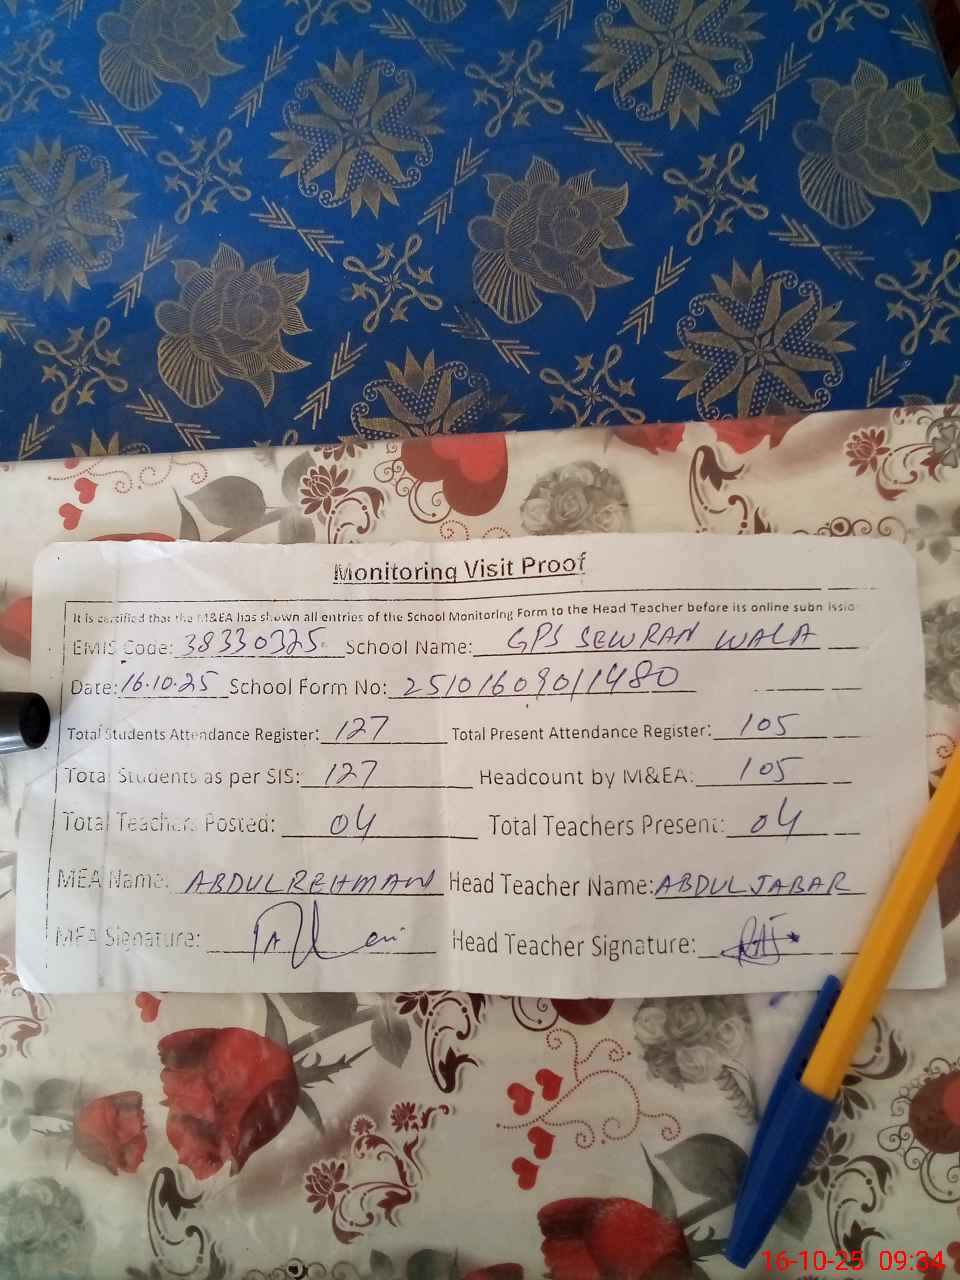 Monitoring Visit Proof
It is certified that the M&EA has shown all entries of the School Monitoring Form to the Head Teacher before its online subn issio
EMIS Code: 38330325. School Name: GPS SEWRAN WALA
Date: 16.10.25 School Form No: 25101609011480
Total Students Attendance Register: 127 Total Present Attendance Register: 105
Total Students as per SIS: 127 Headcount by M&EA: 105
Total Teachers Posted: 04 Total Teachers Present: 04
MEA Name: ABDUL REHMAN Head Teacher Name: ABDUL JABAR
MEA Signature: Head Teacher Signature:
16-10-25 09:34